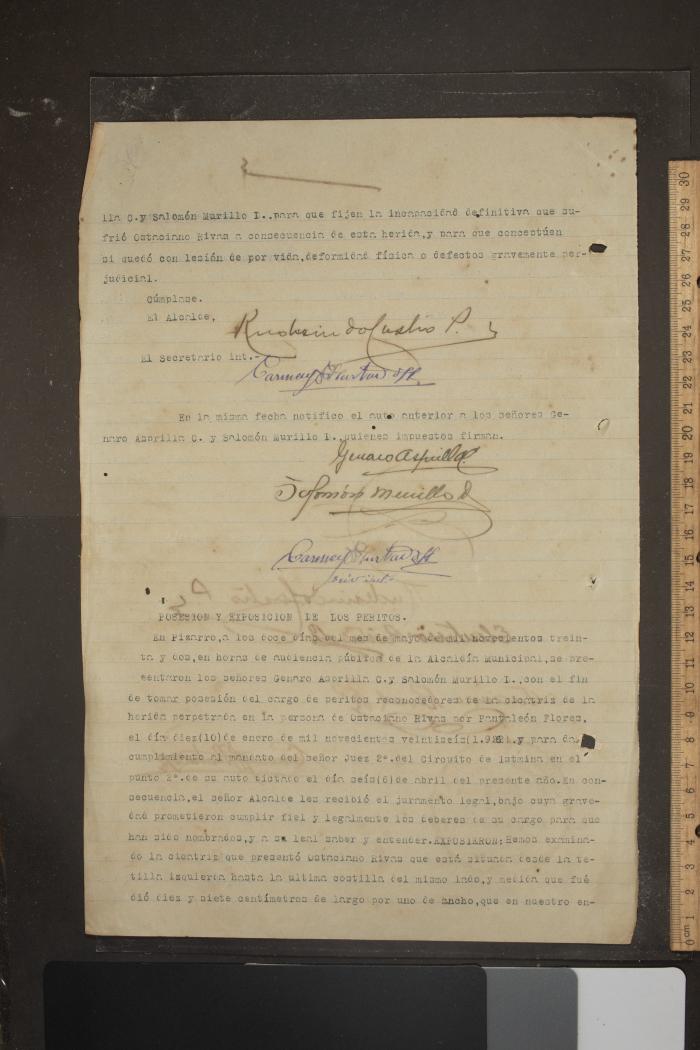 lla C.y Salomón Murillo D.,para que fijen la incapacidad definitiva que su-
frió Ostaciano Rivas a consecuencia de esta herida,y para que conceptúen
si quedó con lesión de por vida,deformidad física o defectos gravemente per-
judicial.
Cúmplase.
El Alcalde,
Rudesindo Castro P.
El Secretario int.-
En la misma fecha notifico el auto anterior a los señores Ge-
naro Asprilla C. y Salomón Murillo D.,quienes impuestos firman.
Genaro Asprilla C.
Salomón Murillo D
srio int.
POSESION Y EXPOSICION DE LOS PERITOS.
En Pizarro,a los doce días del mes de mayo de mil novecientos trein-
ta y dos,en horas de audiencia pública de la Alcaldía Municipal,se pre-
sentaron los señores Genaro Asprilla C.y Salomón Murillo D.,con el fin
de tomar posesión del cargo de peritos reconocedores de la cicatriz de la
herida perpetrada en la persona de Ostaciano Rivas por Pantaleón Flores,
el día diez(10)de enero de mil novecientos veintiseis(1.926).y para dar
cumplimiento al mandato del señor Juez 2º.del Circuito de Istmina en el
punto 2º.de su auto dictado el día seis(6)de abril del presente año.En con-
secuencia,el señor Alcalde les recibió el juramento legal,bajo cuya grave-
dad prometieron cumplir fiel y legalmente los deberes de su cargo para que
han sido nombrados,y a su leal saber y entender.EXPUSIERON:Hemos examina-
do la cicatriz que presentó Ostaciano Rivas que está situada desde la te-
tilla izquierda hasta la ultima costilla del mismo lado,y medida que fué
dió diez y siete centímetros de largo por uno de ancho,que en nuestro en-
0cm 1 2 3 4 5 6 7 8 9 10 11 12 13 14 15 16 17 18 19 20 21 22 23 24 25 26 27 28 29 30